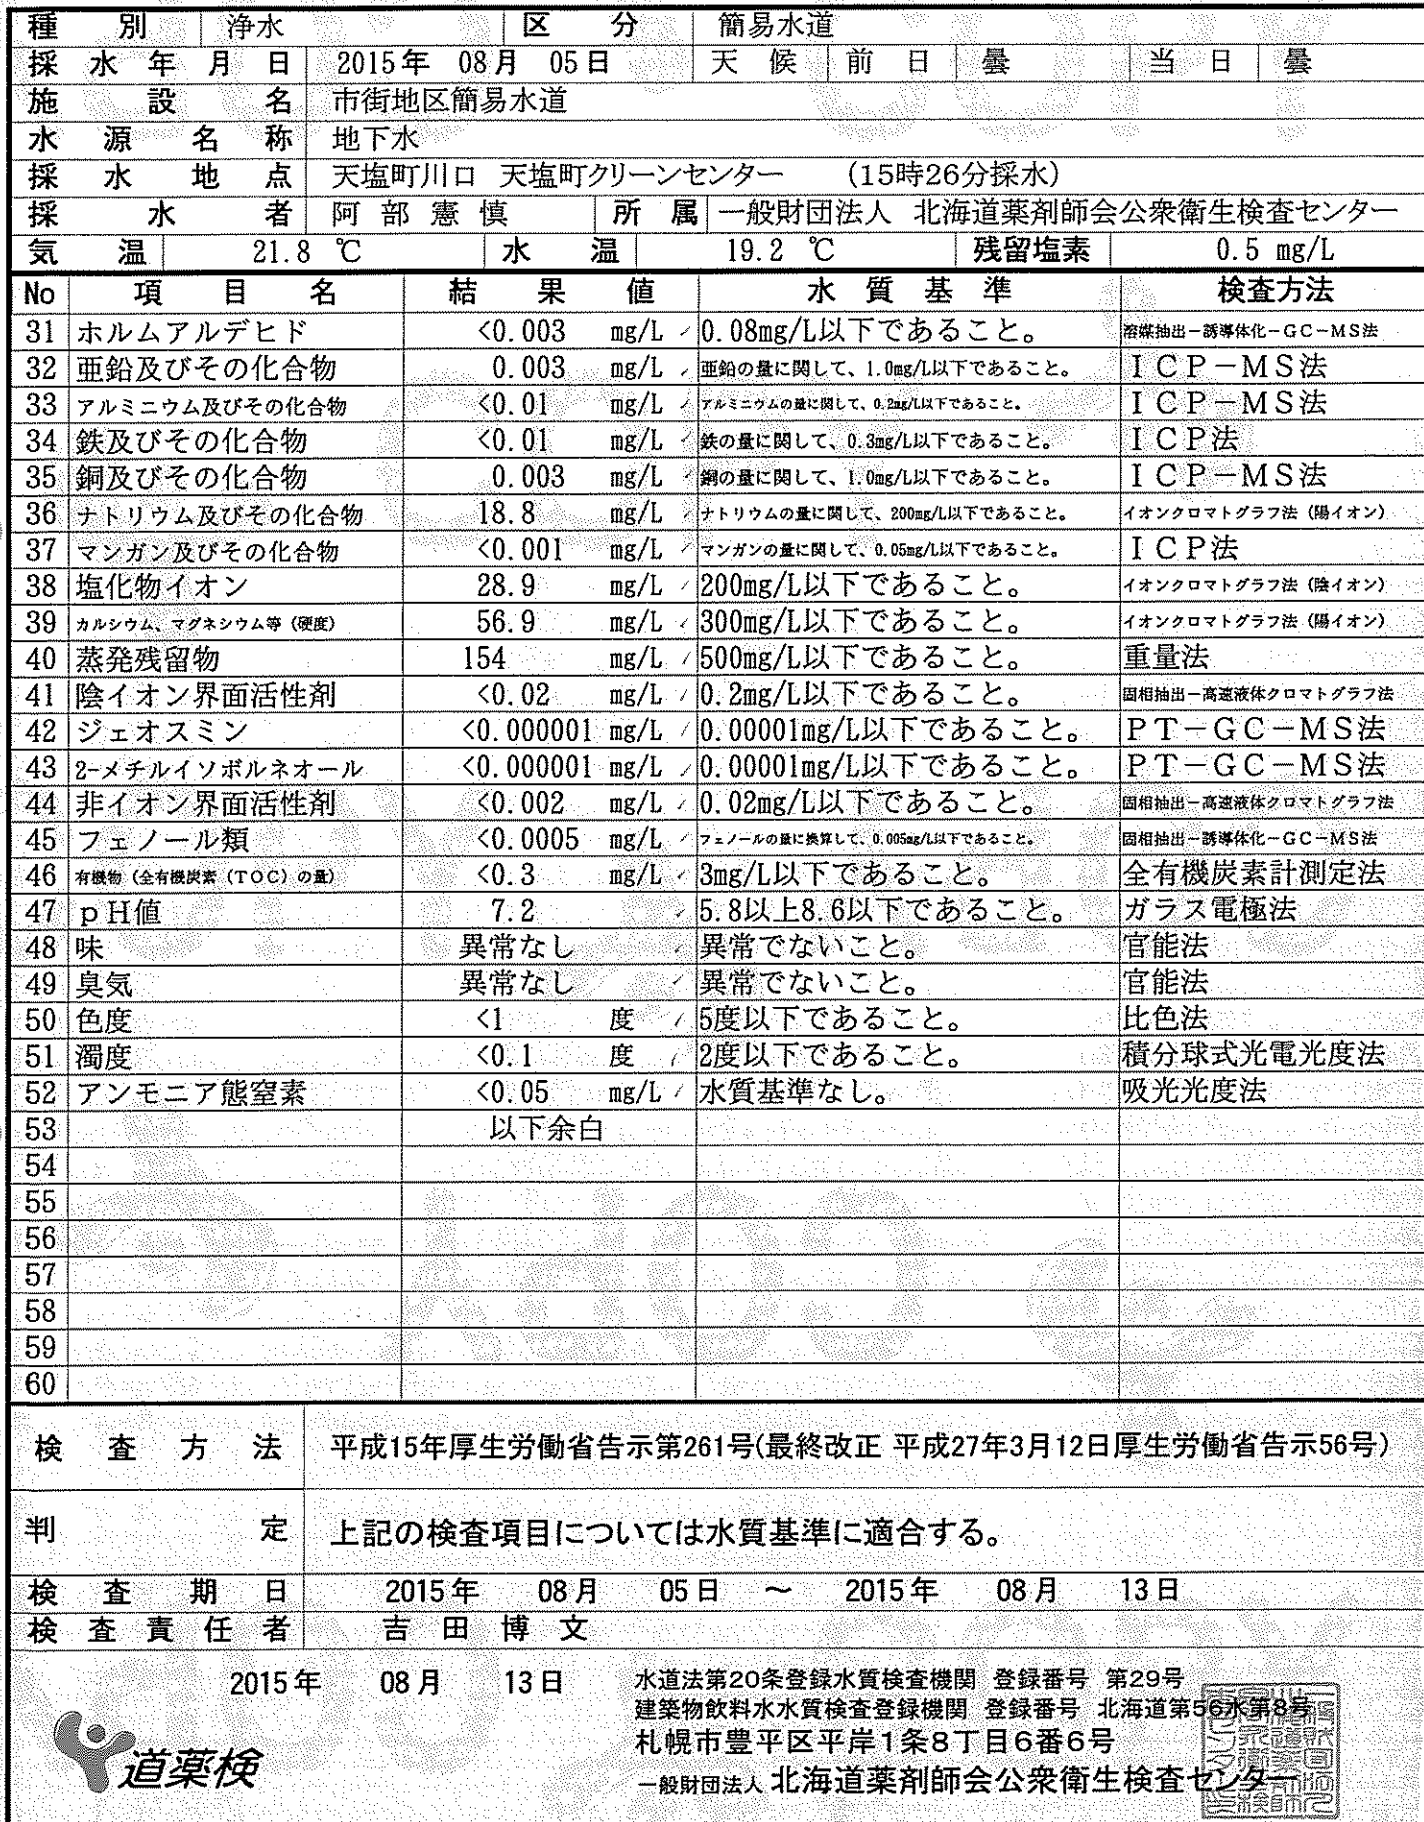 種別 浄水 区分 簡易水道
採水年月日 2015年 08月 05日 天候 前日 曇 当日 曇
施設名 市街地区簡易水道
水源名称 地下水
採水地点 天塩町川口 天塩町クリーンセンター (15時26分採水)
採水者 阿部憲慎 所属 一般財団法人 北海道薬剤師会公衆衛生検査センター
気温 21.8 ℃ 水温 19.2 ℃ 残留塩素 0.5 mg/L
No 項目名 結果値 水質基準 検査方法
31 ホルムアルデヒド <0.003 mg/L 0.08mg/L以下であること。 溶媒抽出-誘導体化-GC-MS法
32 亜鉛及びその化合物 0.003 mg/L 亜鉛の量に関して、1.0mg/L以下であること。 ICP-MS法
33 アルミニウム及びその化合物 <0.01 mg/L アルミニウムの量に関して、0.2mg/L以下であること。 ICP-MS法
34 鉄及びその化合物 <0.01 mg/L 鉄の量に関して、0.3mg/L以下であること。 ICP法
35 銅及びその化合物 0.003 mg/L 銅の量に関して、1.0mg/L以下であること。 ICP-MS法
36 ナトリウム及びその化合物 18.8 mg/L ナトリウムの量に関して、200mg/L以下であること。 イオンクロマトグラフ法(陽イオン)
37 マンガン及びその化合物 <0.001 mg/L マンガンの量に関して、0.05mg/L以下であること。 ICP法
38 塩化物イオン 28.9 mg/L 200mg/L以下であること。 イオンクロマトグラフ法(陰イオン)
39 カルシウム、マグネシウム等(硬度) 56.9 mg/L 300mg/L以下であること。 イオンクロマトグラフ法(陽イオン)
40 蒸発残留物 154 mg/L 500mg/L以下であること。 重量法
41 陰イオン界面活性剤 <0.02 mg/L 0.2mg/L以下であること。 固相抽出-高速液体クロマトグラフ法
42 ジェオスミン <0.000001 mg/L 0.00001mg/L以下であること。 PT-GC-MS法
43 2-メチルイソボルネオール <0.000001 mg/L 0.00001mg/L以下であること。 PT-GC-MS法
44 非イオン界面活性剤 <0.002 mg/L 0.02mg/L以下であること。 固相抽出-高速液体クロマトグラフ法
45 フェノール類 <0.0005 mg/L フェノールの量に換算して、0.005mg/L以下であること。 固相抽出-誘導体化-GC-MS法
46 有機物(全有機炭素(TOC)の量) <0.3 mg/L 3mg/L以下であること。 全有機炭素計測定法
47 pH値 7.2 5.8以上8.6以下であること。 ガラス電極法
48 味 異常なし 異常でないこと。 官能法
49 臭気 異常なし 異常でないこと。 官能法
50 色度 <1 度 5度以下であること。 比色法
51 濁度 <0.1 度 2度以下であること。 積分球式光電光度法
52 アンモニア態窒素 <0.05 mg/L 水質基準なし。 吸光光度法
53 以下余白
54
55
56
57
58
59
60
検査方法 平成15年厚生労働省告示第261号(最終改正 平成27年3月12日厚生労働省告示56号)
判定 上記の検査項目については水質基準に適合する。
検査期日 2015年 08月 05日 ~ 2015年 08月 13日
検査責任者 吉田博文
2015年 08月 13日 水道法第20条登録水質検査機関 登録番号 第29号
建築物飲料水水質検査登録機関 登録番号 北海道第56水第8号
札幌市豊平区平岸1条8丁目6番6号
道薬検 一般財団法人 北海道薬剤師会公衆衛生検査センター